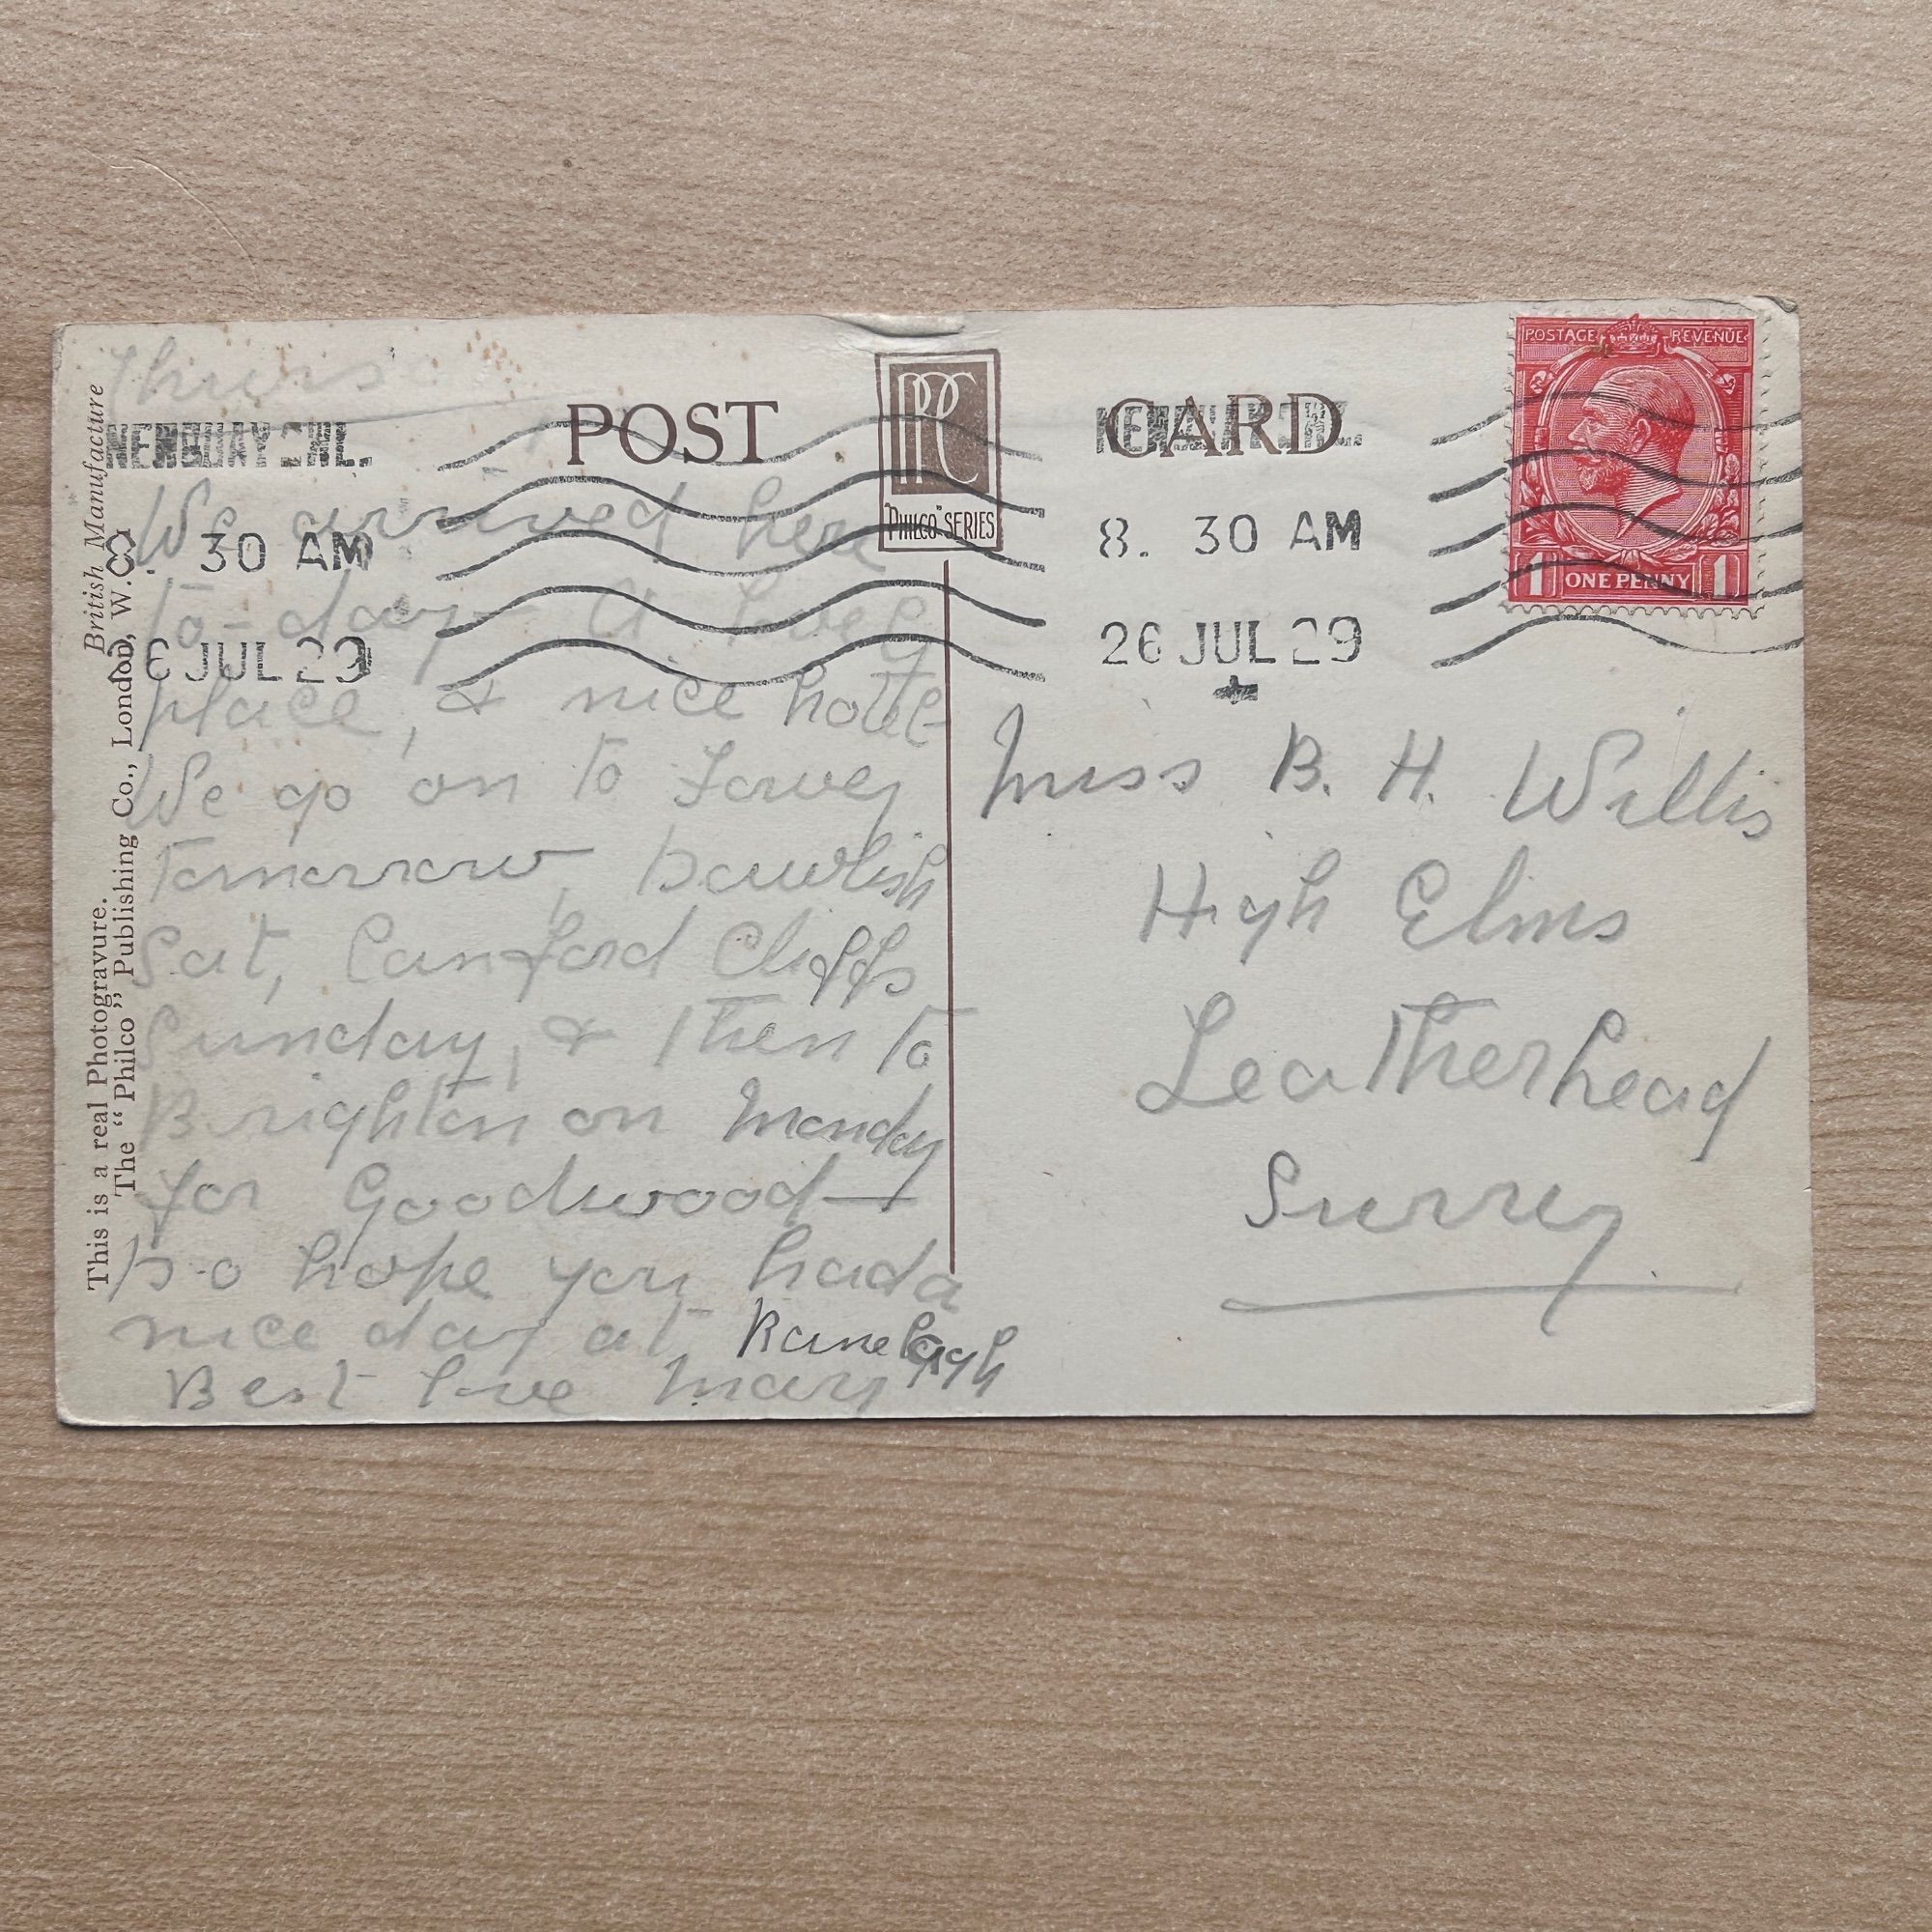 Thurs
NEWQUAY
8. 30 AM
6 JUL 29
POST CARD
"PHILCO" SERIES
8. 30 AM
26 JUL 29
POSTAGE REVENUE
1 ONE PENNY 1
British Manufacture
This is a real Photogravure.
The "Philco" Publishing Co., London, W.C.
We arrived here
to-day. A lovely
place, & nice hotel
We go on to Fowey
tomorrow, Dawlish
Sat, Canford Cliffs
Sunday, & then to
Brighton on Monday
for Goodwood—
Do hope you had a
nice day at Ranelagh
Best love Mary
Miss B. H. Willis
High Elms
Leatherhead
Surrey